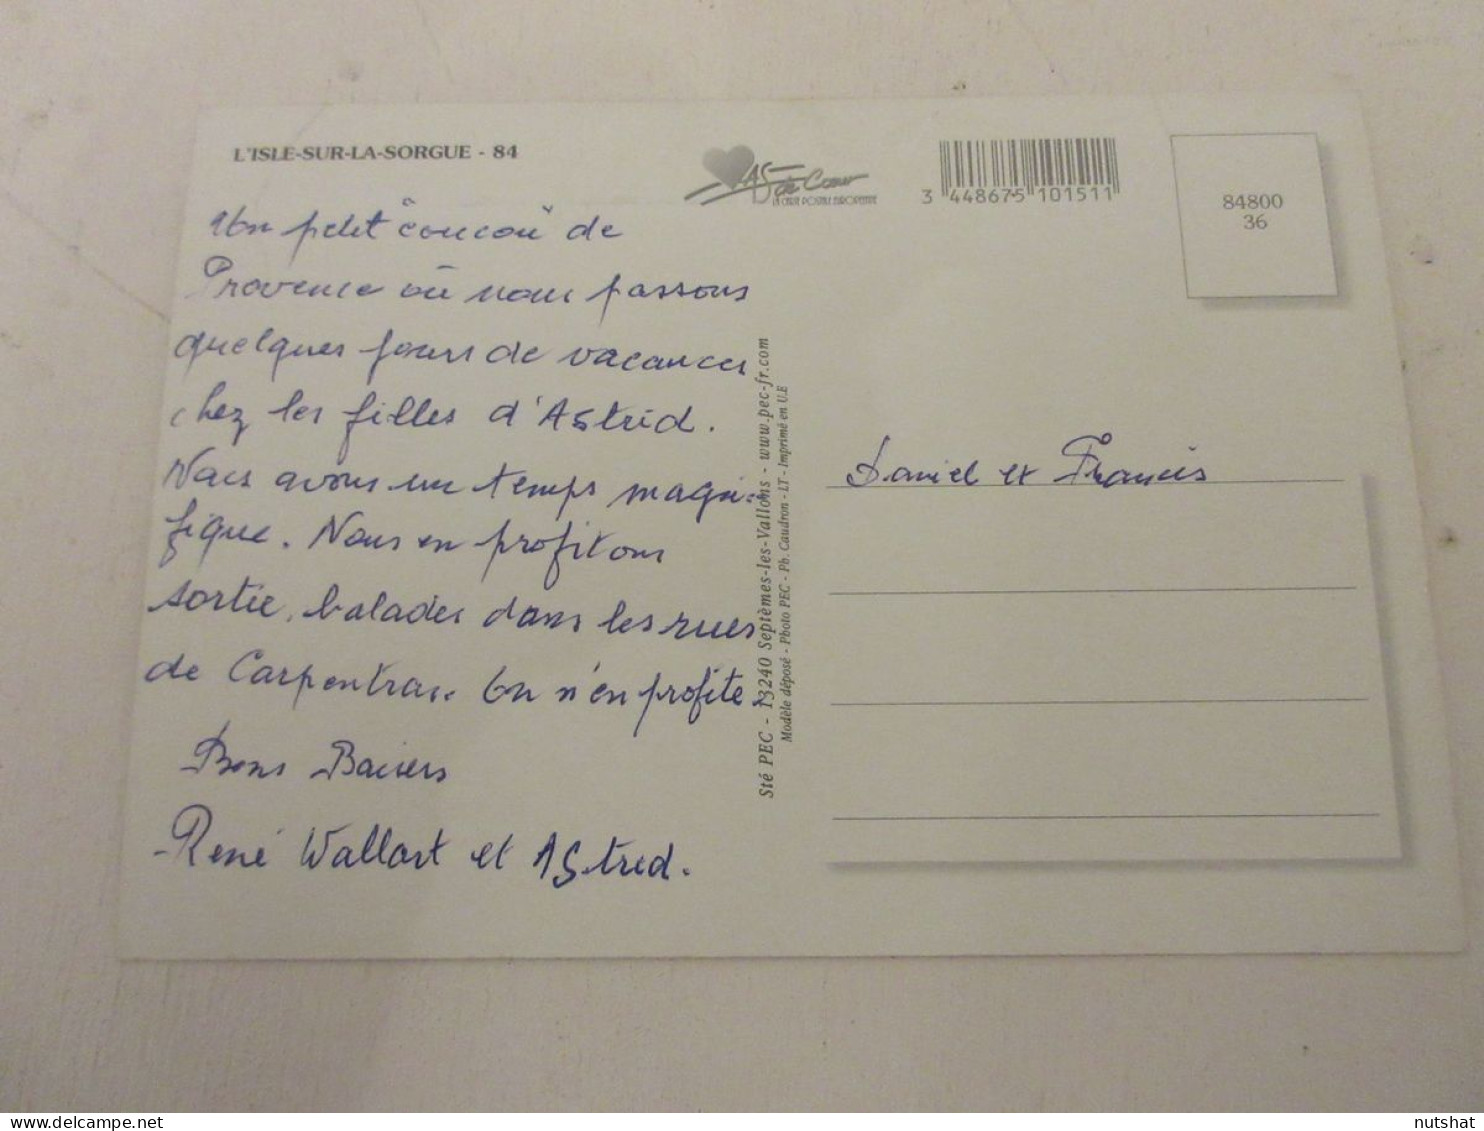 L'ISLE-SUR-LA-SORGUE - 84
AS de Cœur
LA CARTE POSTALE EUROPEENNE
3 448675 101511
84800
36
Un petit "coucou" de
Provence où nous passons
quelques jours de vacances
chez les filles d'Astrid.
Nous avons un temps magni-
fique. Nous en profitons
sortie, balades dans les rues
de Carpentras. On n'en profite.
Bons Baisers
René Wallart et Astrid.
Sté PEC - 13240 Septèmes-les-Vallons - www.pec-fr.com
Modèle déposé - Photo PEC - Ph. Caudron - LT - Imprimé en U.E
Daniel et Francis
nutshat